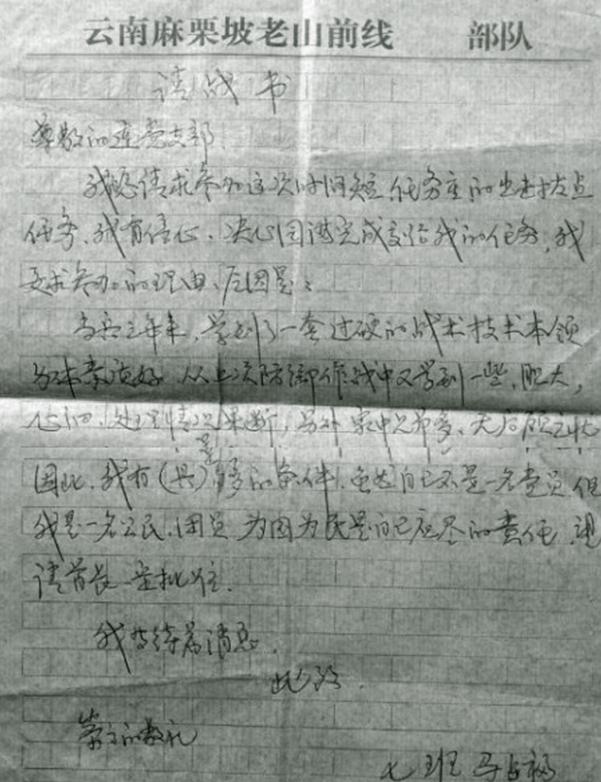 云南麻栗坡老山前线 部队
请战书
尊敬的连党支部
我恳请求参加这次时间短任务重的出击拔点
任务,我有信心、决心圆满完成交给我的任务,我
要求参加的理由、原因是:
当兵三年来,学到了一套过硬的战术技术本领
身体素质好 从上次防御作战中又学到一些,胆大,
心细,处理情况果断,另外家中兄弟多、无后顾之忧
因此,我有(具)备的条件,虽然自己不是一名党员 但
我是一名公民、团员 为国为民是自己应尽的责任,
请首长 批准.
我等待着消息.
此致.
崇高的敬礼
七班 马占福